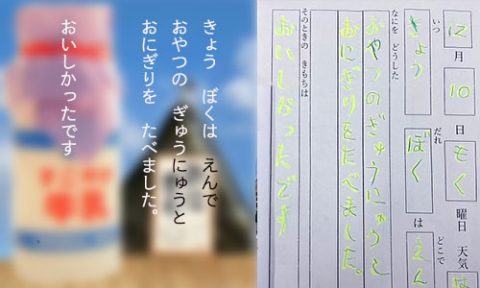 きょう　ぼくは　えんで
おやつの　ぎゅうにゅうと
おにぎりを　たべました。
おいしかったです
12月10日もく曜日 天気は
いつ だれ どこで
きょう ぼく は えん
なにを どうした
おやつのぎゅうにゅうと
おにぎりをたべました。
そのときの きもちは
おいしかったです